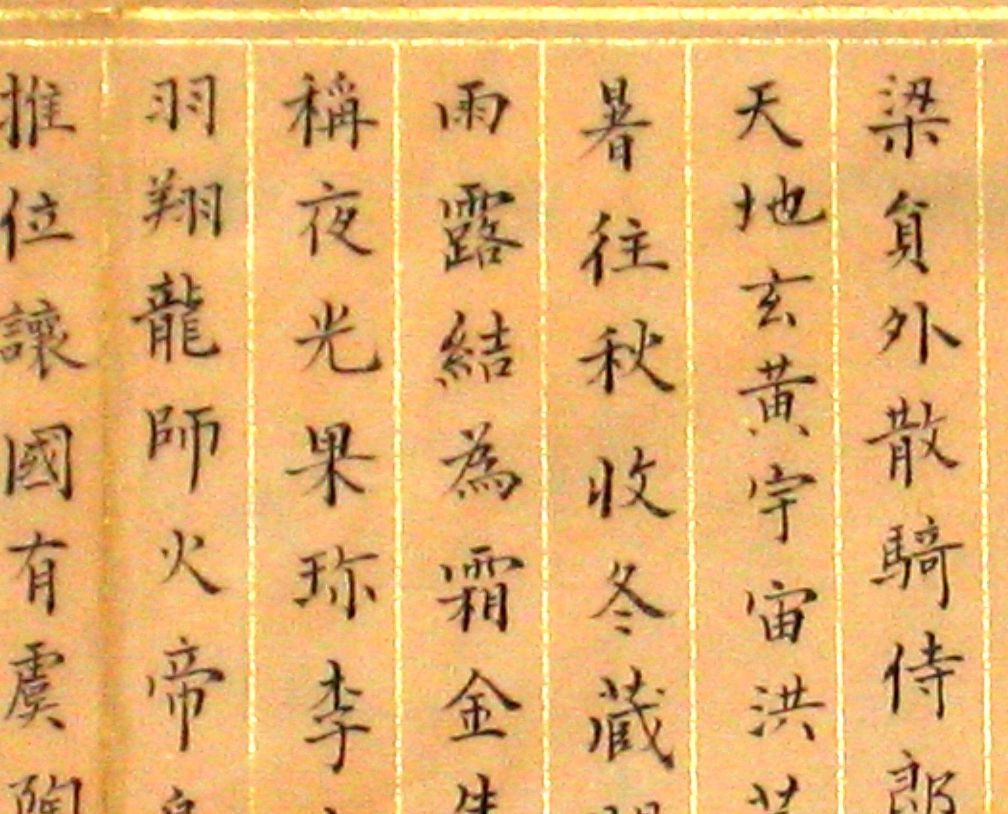 梁貟外散騎侍郎
天地玄黄宇宙洪荒
暑往秋收冬蔵
雨露結為霜金生
稱夜光果珎李
羽翔龍師火帝
推位讓國有虞陶